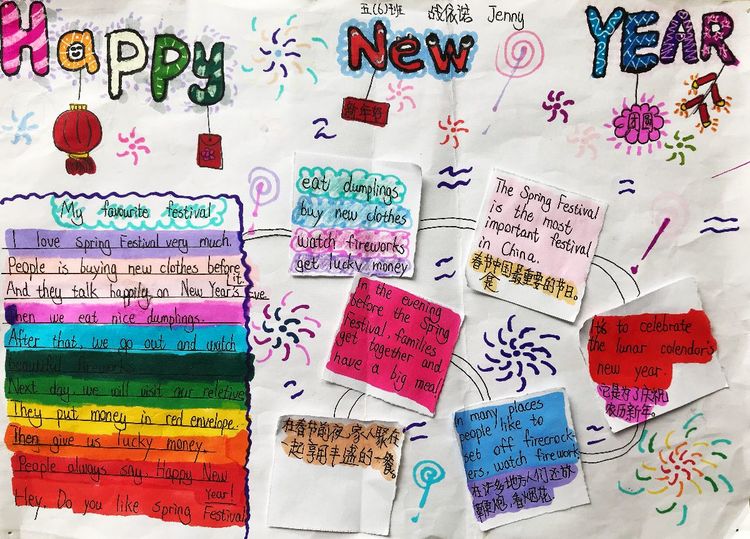 五(6)班 战依诺 Jenny
Happy New YEAR
新年好
团圆
My favourite festival
I love Spring Festival very much.
People is buying new clothes before it.
And they talk happily on New Year's eve.
Then we eat nice dumplings.
After that, we go out and watch
beautiful fireworks.
Next day, we will visit our reletive
They put money in red envelope.
Then give us lucky money.
People always say Happy New
Year!
Hey. Do you like Spring Festival
eat dumplings
buy new clothes
watch fireworks
get lucky money
The Spring Festival
is the most
important festival
in China.
春节中国最重要的节日。
In the evening
before the Spring
Festival, families
get together and
have a big meal
It's to celebrate
the lunar calendar's
new year.
它是为了庆祝
农历新年。
在春节前夜,家人聚在
起享用丰盛的一餐
In many places
people like to
set off firecrack-
ers, watch firework
在许多地方人们还放
鞭炮,看烟花。